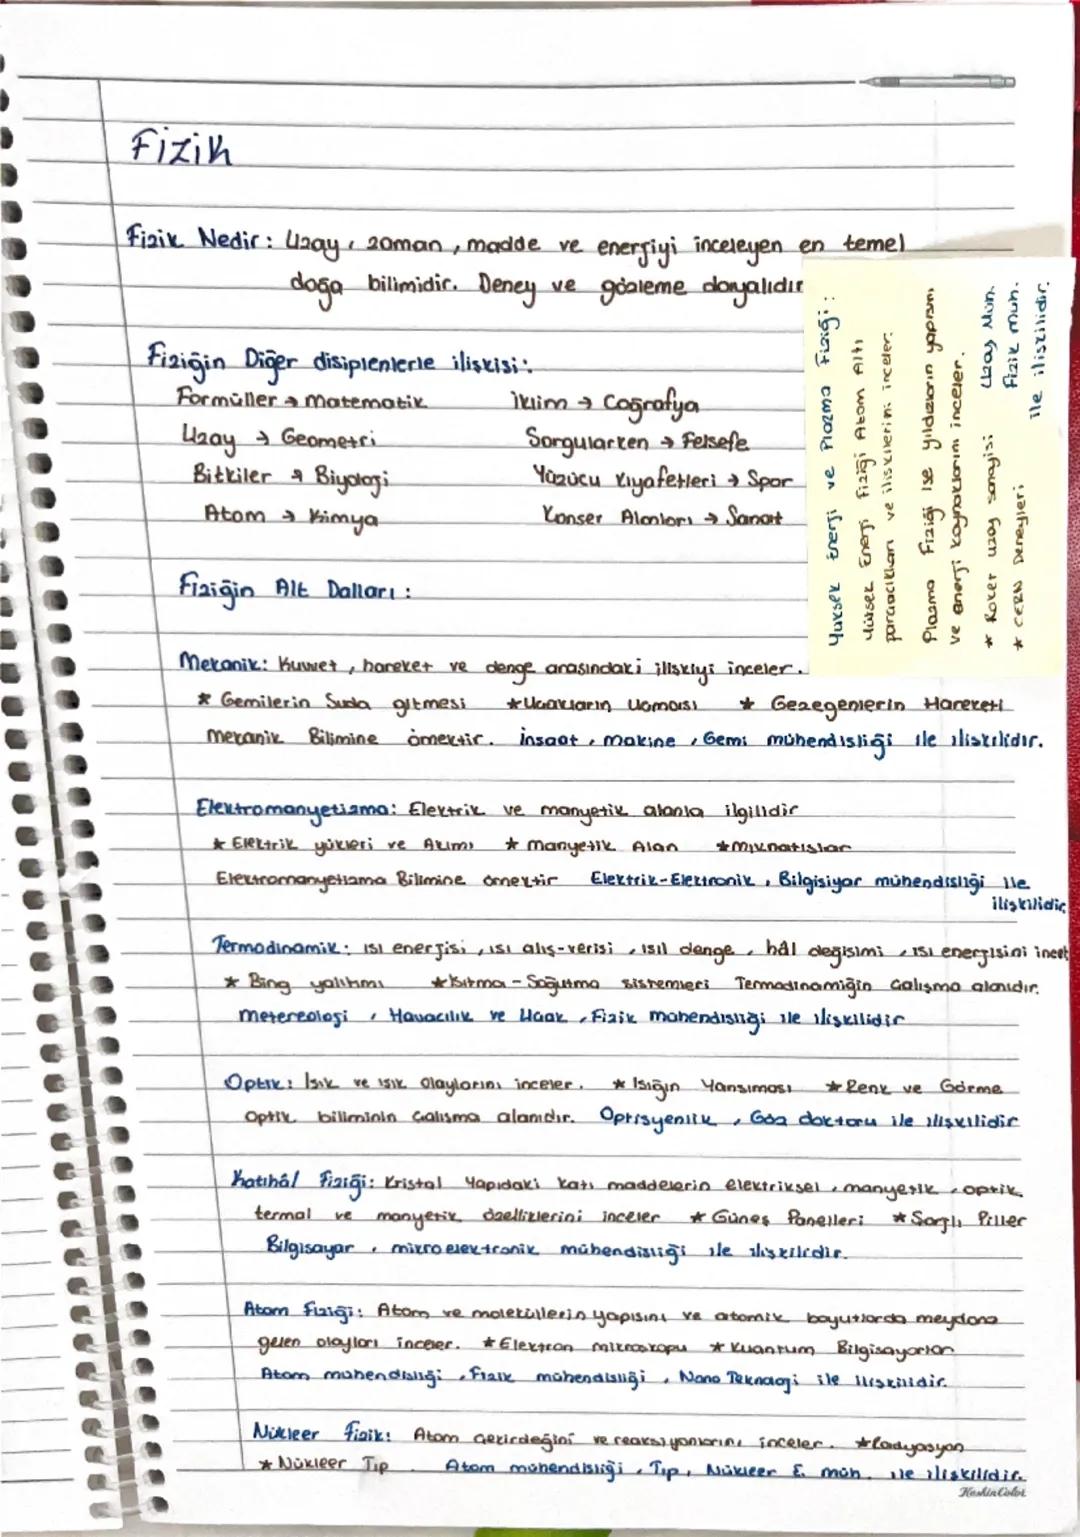 Fizik
Fizik Nedir: Uzay, zaman, madde ve enerjiyi inceleyen en temel
doğa bilimidir. Deney ve gözleme dayalıdır
Fiziğin Diğer disiplenlerle ilişkisi:
Formüller → matematik
Uzay → Geometri
Bitkiler → Biyoloji
Atom → Kimya
iklim → Coğrafya
Sorgularken → Felsefe
Yüzücü Kıyafetleri → Spor
Konser Alanları → Sanat
Yüksek Enerji ve Plazma Fiziği:
Yüksek Enerji Fiziği Atom Altı
parçacıkları ve ilişkilerini inceler.
Plazma Fiziği ise yıldızların yapısını
ve enerji kaynaklarını inceler.
* Roket uzay sanayisi Uzay Müh.
* CERN Deneyleri Fizik müh.
ile ilişkilidir.
Fiziğin Alt Dalları:
Mekanik: Kuvvet, hareket ve denge arasındaki ilişkiyi inceler.
* Gemilerin Suda gitmesi * Uçakların Uçması * Gezegenlerin Hareketi
mekanik Bilimine örnektir. İnşaat, makine, Gemi mühendisliği ile ilişkilidir.
Elektromanyetizma: Elektrik ve manyetik alanla ilgilidir
* Elektrik yükleri ve Akımı * manyetik Alan * mıknatıslar
Elektromanyetizma Bilimine örnektir Elektrik-Elektronik, Bilgisiyar mühendisliği ile
ilişkilidir
Termodinamik: ısı enerjisi, ısı alış-verisi, ısıl denge, hâl değişimi, ısı enerjisini incel
* Bina yalıtımı * Isıtma - Soğutma sistemleri Termodinamiğin Çalışma alanıdır.
metereoloji, Havacılık ve Uzak, Fizik mühendisliği ile ilişkilidir
Optik: Işık ve ışık olaylarını inceler. * Işığın Yansıması * Renk ve Görme
optik biliminin Çalışma alanıdır. Optisyenlik, Göz doktoru ile ilişkilidir
Katıhâl Fiziği: Kristal Yapıdaki katı maddelerin elektriksel, manyetik, optik,
termal ve manyetik özelliklerini inceler * Güneş Panelleri * Şarjlı Piller
Bilgisayar, mikroelektronik mühendisliği ile ilişkilidir.
Atom Fiziği: Atom ve moleküllerin yapısını ve atomik boyutlarda meydana
gelen olayları inceler. * Elektron mikroskopu * Kuantum Bilgisayarları
Atom mühendisliği, Fizik mühendisliği, Nano Teknoloji ile ilişkilidir.
Nükleer Fizik: Atom çekirdeğini ve reaksiyonlarını inceler. * Radyasyon
* Nükleer Tıp Atom mühendisliği, Tıp, Nükleer E. müh. ile ilişkilidir.
KeskinColor